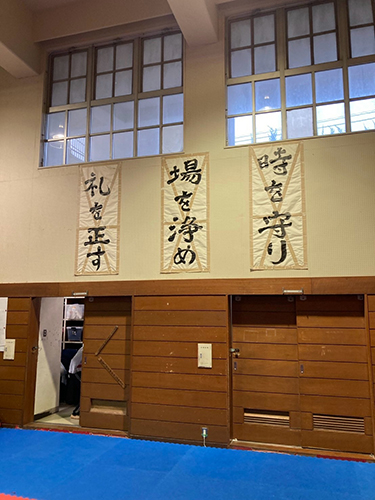 時を守り
場を浄め
礼を正す